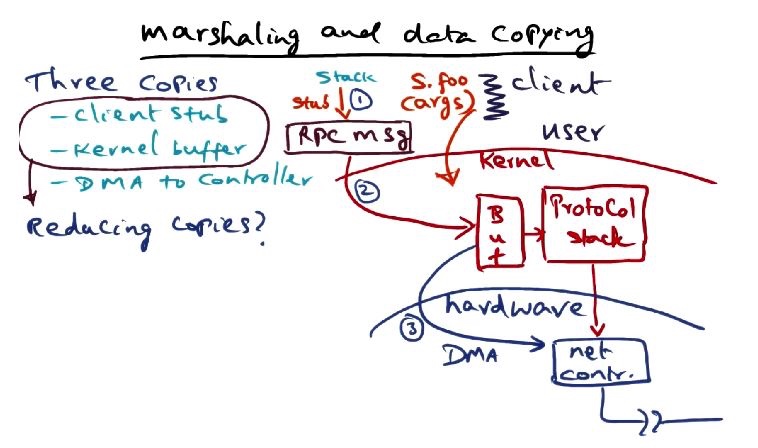 marshaling and data copying
Three Copies
- Client stub
- Kernel buffer
- DMA to Controller
Reducing copies?
Stack
stub ①
RPC msg
S.foo
(args)
client
user
Kernel
②
Buf
Protocol
stack
hardware
③
DMA
net
contr.